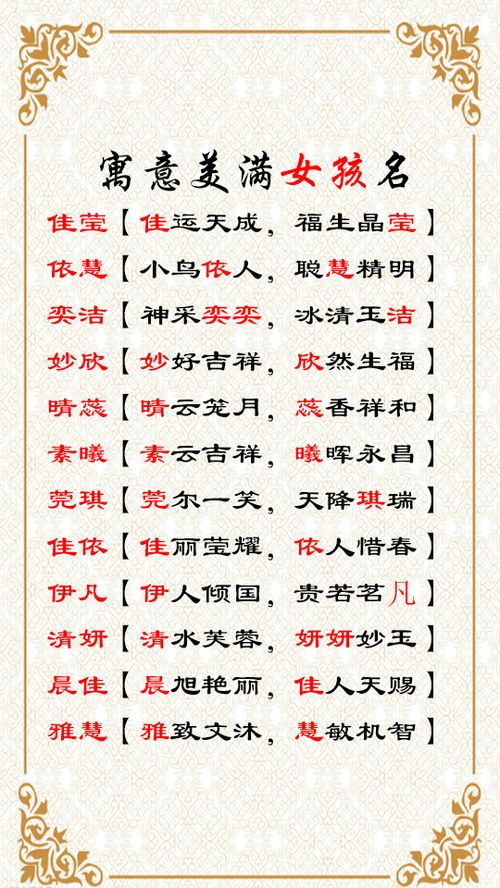 寓意美满女孩名
佳莹【佳运天成，福生晶莹】
依慧【小鸟依人，聪慧精明】
奕洁【神采奕奕，冰清玉洁】
妙欣【妙好吉祥，欣然生福】
晴蕊【晴云笼月，蕊香祥和】
素曦【素云吉祥，曦晖永昌】
莞琪【莞尔一笑，天降琪瑞】
佳依【佳丽莹耀，依人惜春】
伊凡【伊人倾国，贵若茗凡】
清妍【清水芙蓉，妍妍妙玉】
晨佳【晨旭艳丽，佳人天赐】
雅慧【雅致文沐，慧敏机智】